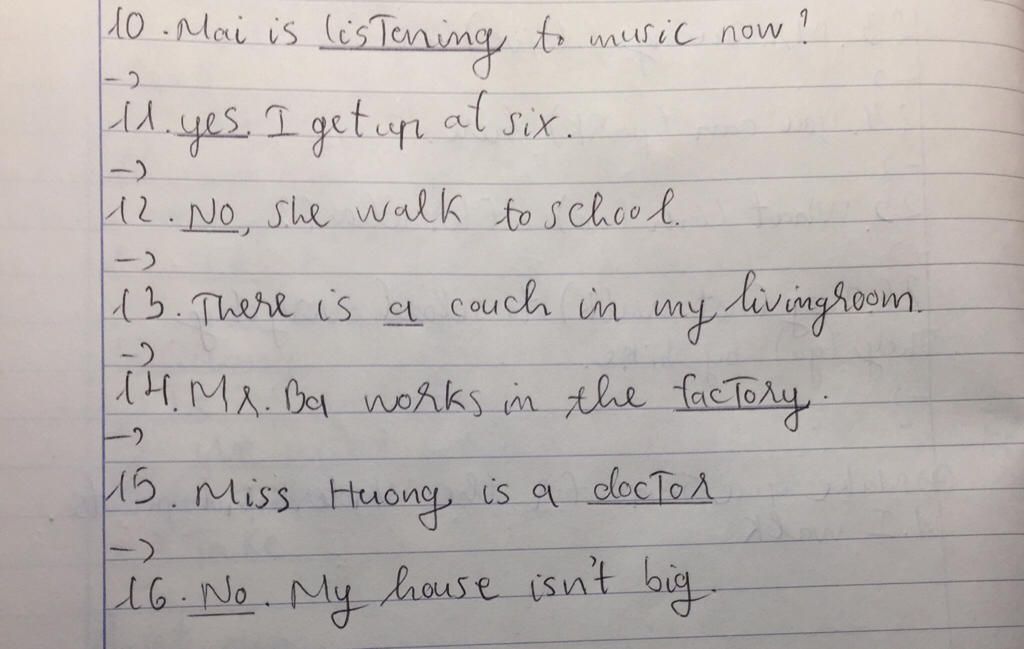 10. Mai is listening to music now?
->
11. yes. I get up at six.
->
12. No, she walk to school.
->
13. There is a couch in my livingroom.
->
14. Mr. Ba works in the factory.
->
15. Miss Huong is a doctor
->
16. No. My house isn't big.